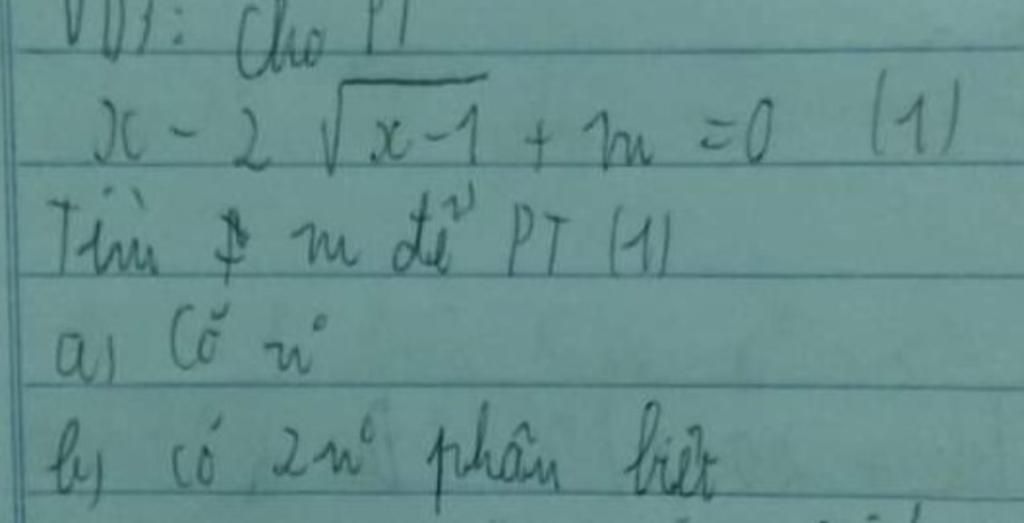 Cho PT
x - 2 √x-1 + m = 0 (1)
Tìm m để PT (1)
a) Có n°
b) có 2n° phân biệt